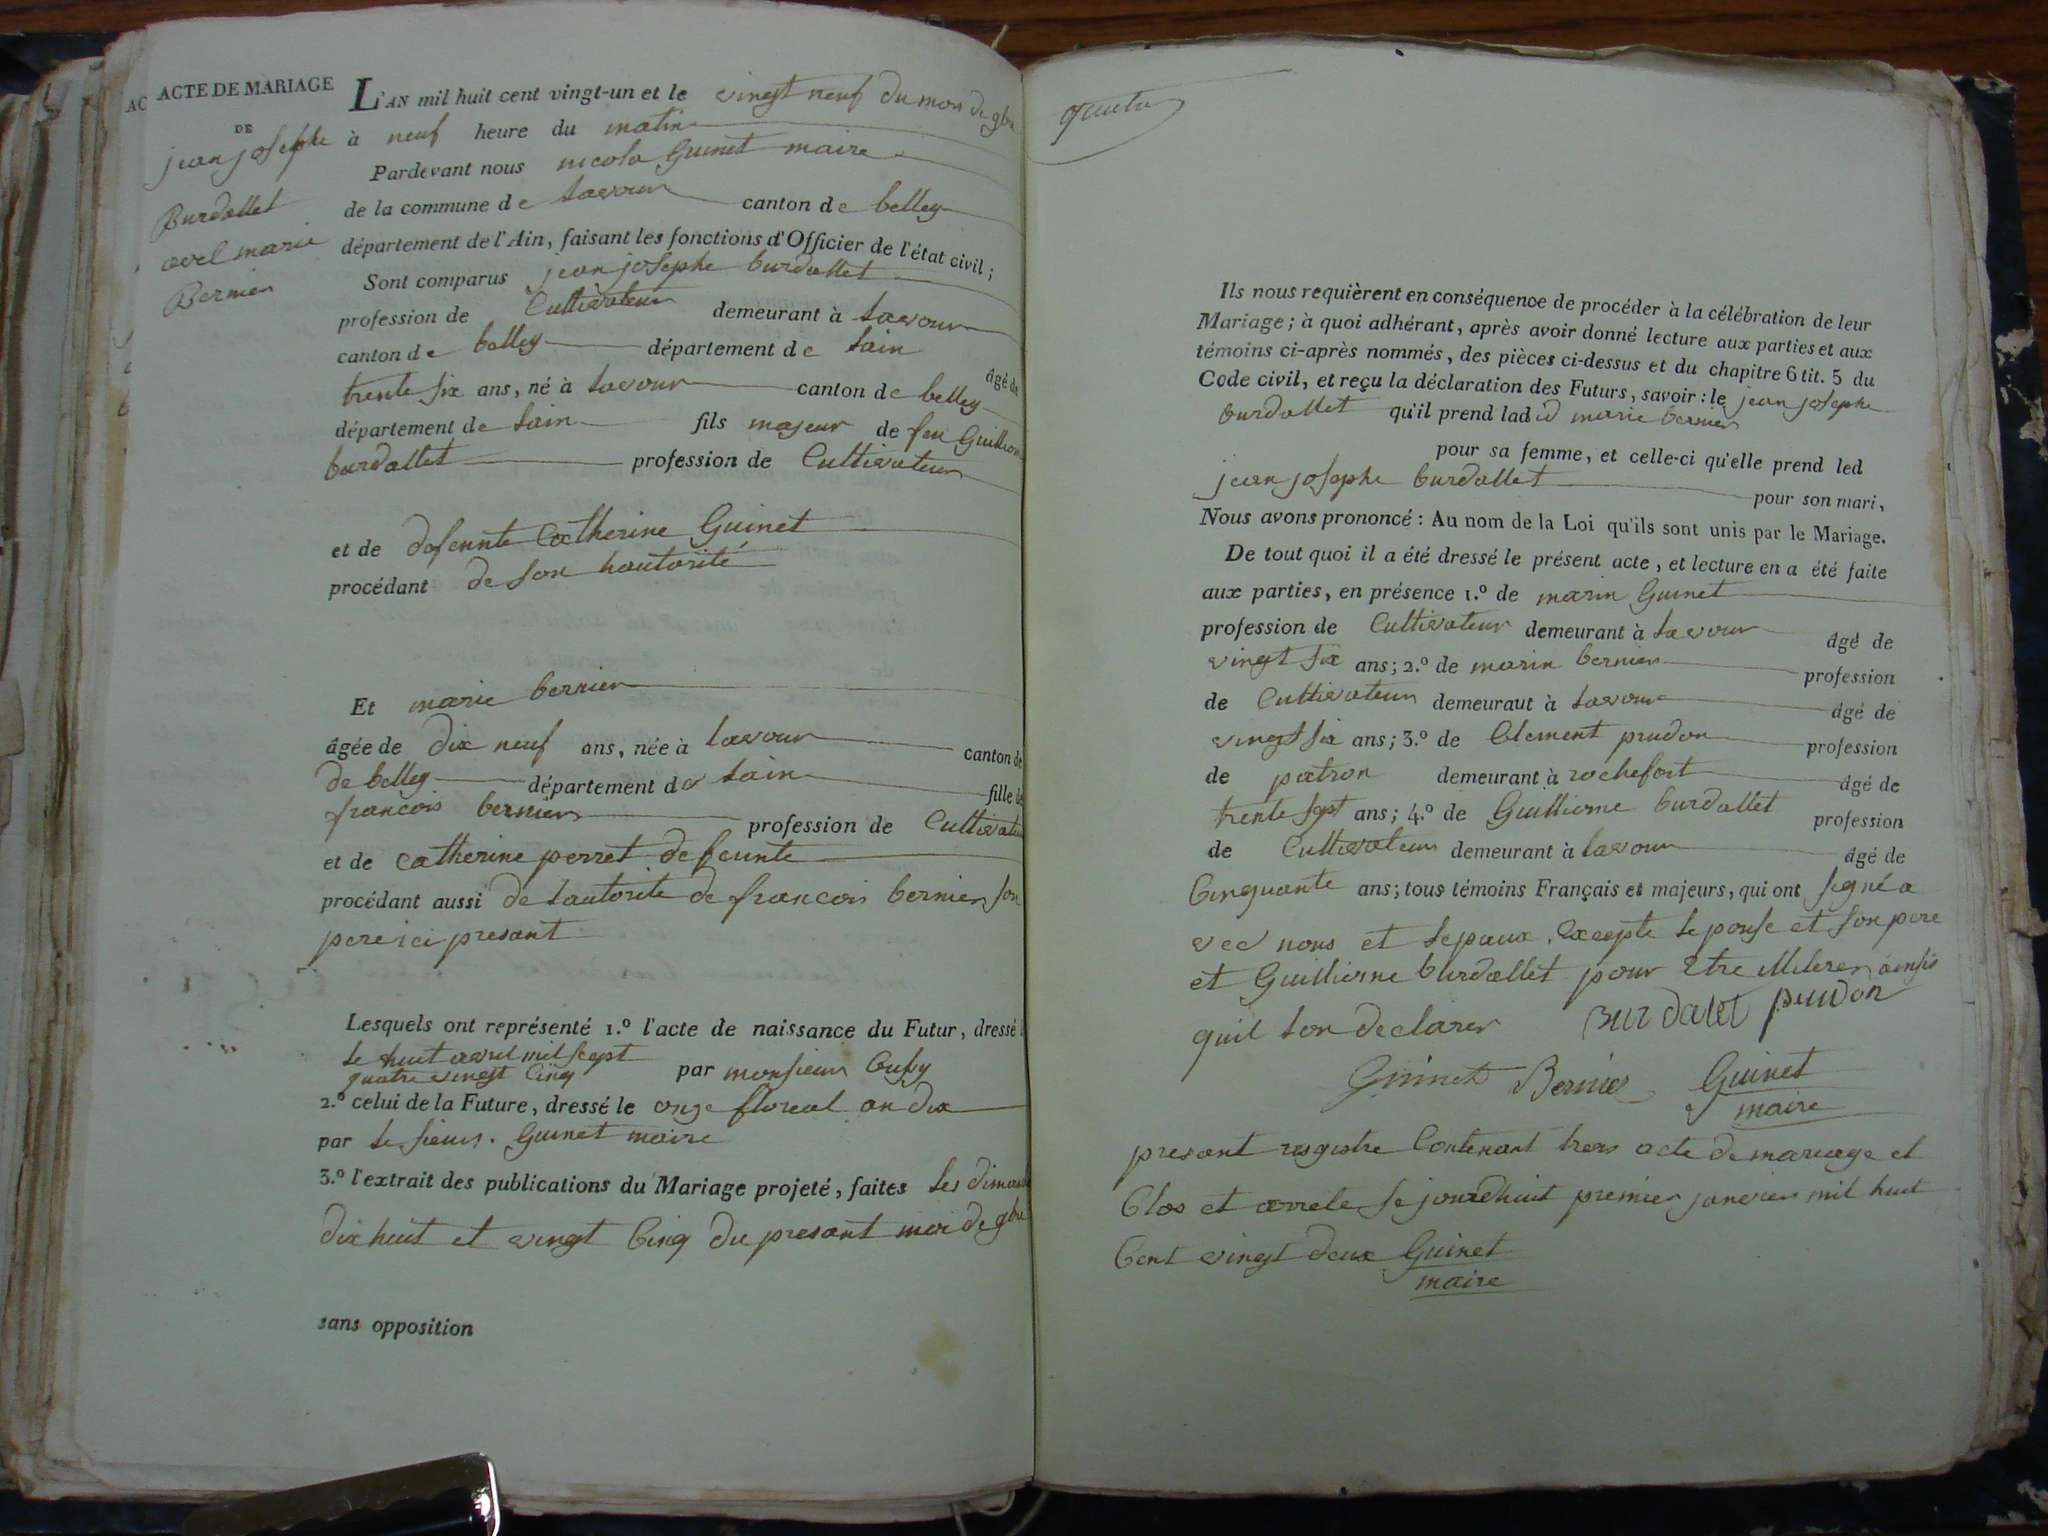 ACTE DE MARIAGE
DE
jean josephe
Burdallet
avel marie
Bernier
L'AN mil huit cent vingt-un et le vingt neuf du mois de 9bre
à neuf heure du matin
Pardevant nous nicola Guinet maire
de la commune de Lavour canton de belley
département de l'Ain, faisant les fonctions d'Officier de l'état civil;
Sont comparus jean josephe burdallet
profession de Cultivateur demeurant à Lavour
canton de belley département de Lain âgé de
trente six ans, né à Lavour canton de belley
département de Lain fils majeur de feu Guilliome
burdallet profession de Cultivateur
et de defeunte Catherine Guinet
procédant de son hautorité
Et marie bernier
âgée de dix neuf ans, née à Lavour canton de
de belley département de Lain fille de
françois bernier profession de Cultivateur
et de Catherine perret defeunte
procédant aussi de Lautorite de françois bernier son
pere ici presant
Lesquels ont représenté 1.º l'acte de naissance du Futur, dressé
Le huit avril mil sept
quatre vingt Cinq par monsieur Cusy
2.º celui de la Future, dressé le onze floreal an dix
par Le sieur. Guinet maire
3.º l'extrait des publications du Mariage projeté, faites Les dimanche
dix huit et vingt Cinq du presant moi de 9bre
sans opposition
Ils nous requièrent en conséquence de procéder à la célébration de leur
Mariage; à quoi adhérant, après avoir donné lecture aux parties et aux
témoins ci-après nommés, des pièces ci-dessus et du chapitre 6 tit. 5 du
Code civil, et reçu la déclaration des Futurs, savoir: le jean josephe
burdallet qu'il prend lad id marie bernier
pour sa femme, et celle-ci qu'elle prend led
jean josephe burdallet pour son mari,
Nous avons prononcé: Au nom de la Loi qu'ils sont unis par le Mariage.
De tout quoi il a été dressé le présent acte, et lecture en a été faite
aux parties, en présence 1.º de marin Guinet
profession de Cultivateur demeurant à Lavour âgé de
vingt six ans; 2.º de marin bernier profession
de Cultivateur demeuraut à Lavour âgé de
vingt six ans; 3.º de Clement prudon profession
de patron demeurant à rochefort âgé de
trente sept ans; 4.º de Guilliome burdallet profession
de Cultivateur demeurant à Lavour âgé de
Cinquante ans; tous témoins Français et majeurs, qui ont signé a
vec nous et Lepoux. Excepte Lepouse et son pere
et Guilliome burdallet pour Etre illiterer ainsis
quil Lon declarer burdalet prudon
Guinet Bernier Guinet
maire
presant resgistre Contenant trois acte de mariage et
Clos et arrete Le jourdhuit premier janvier mil huit
Cent vingt deux Guinet
maire